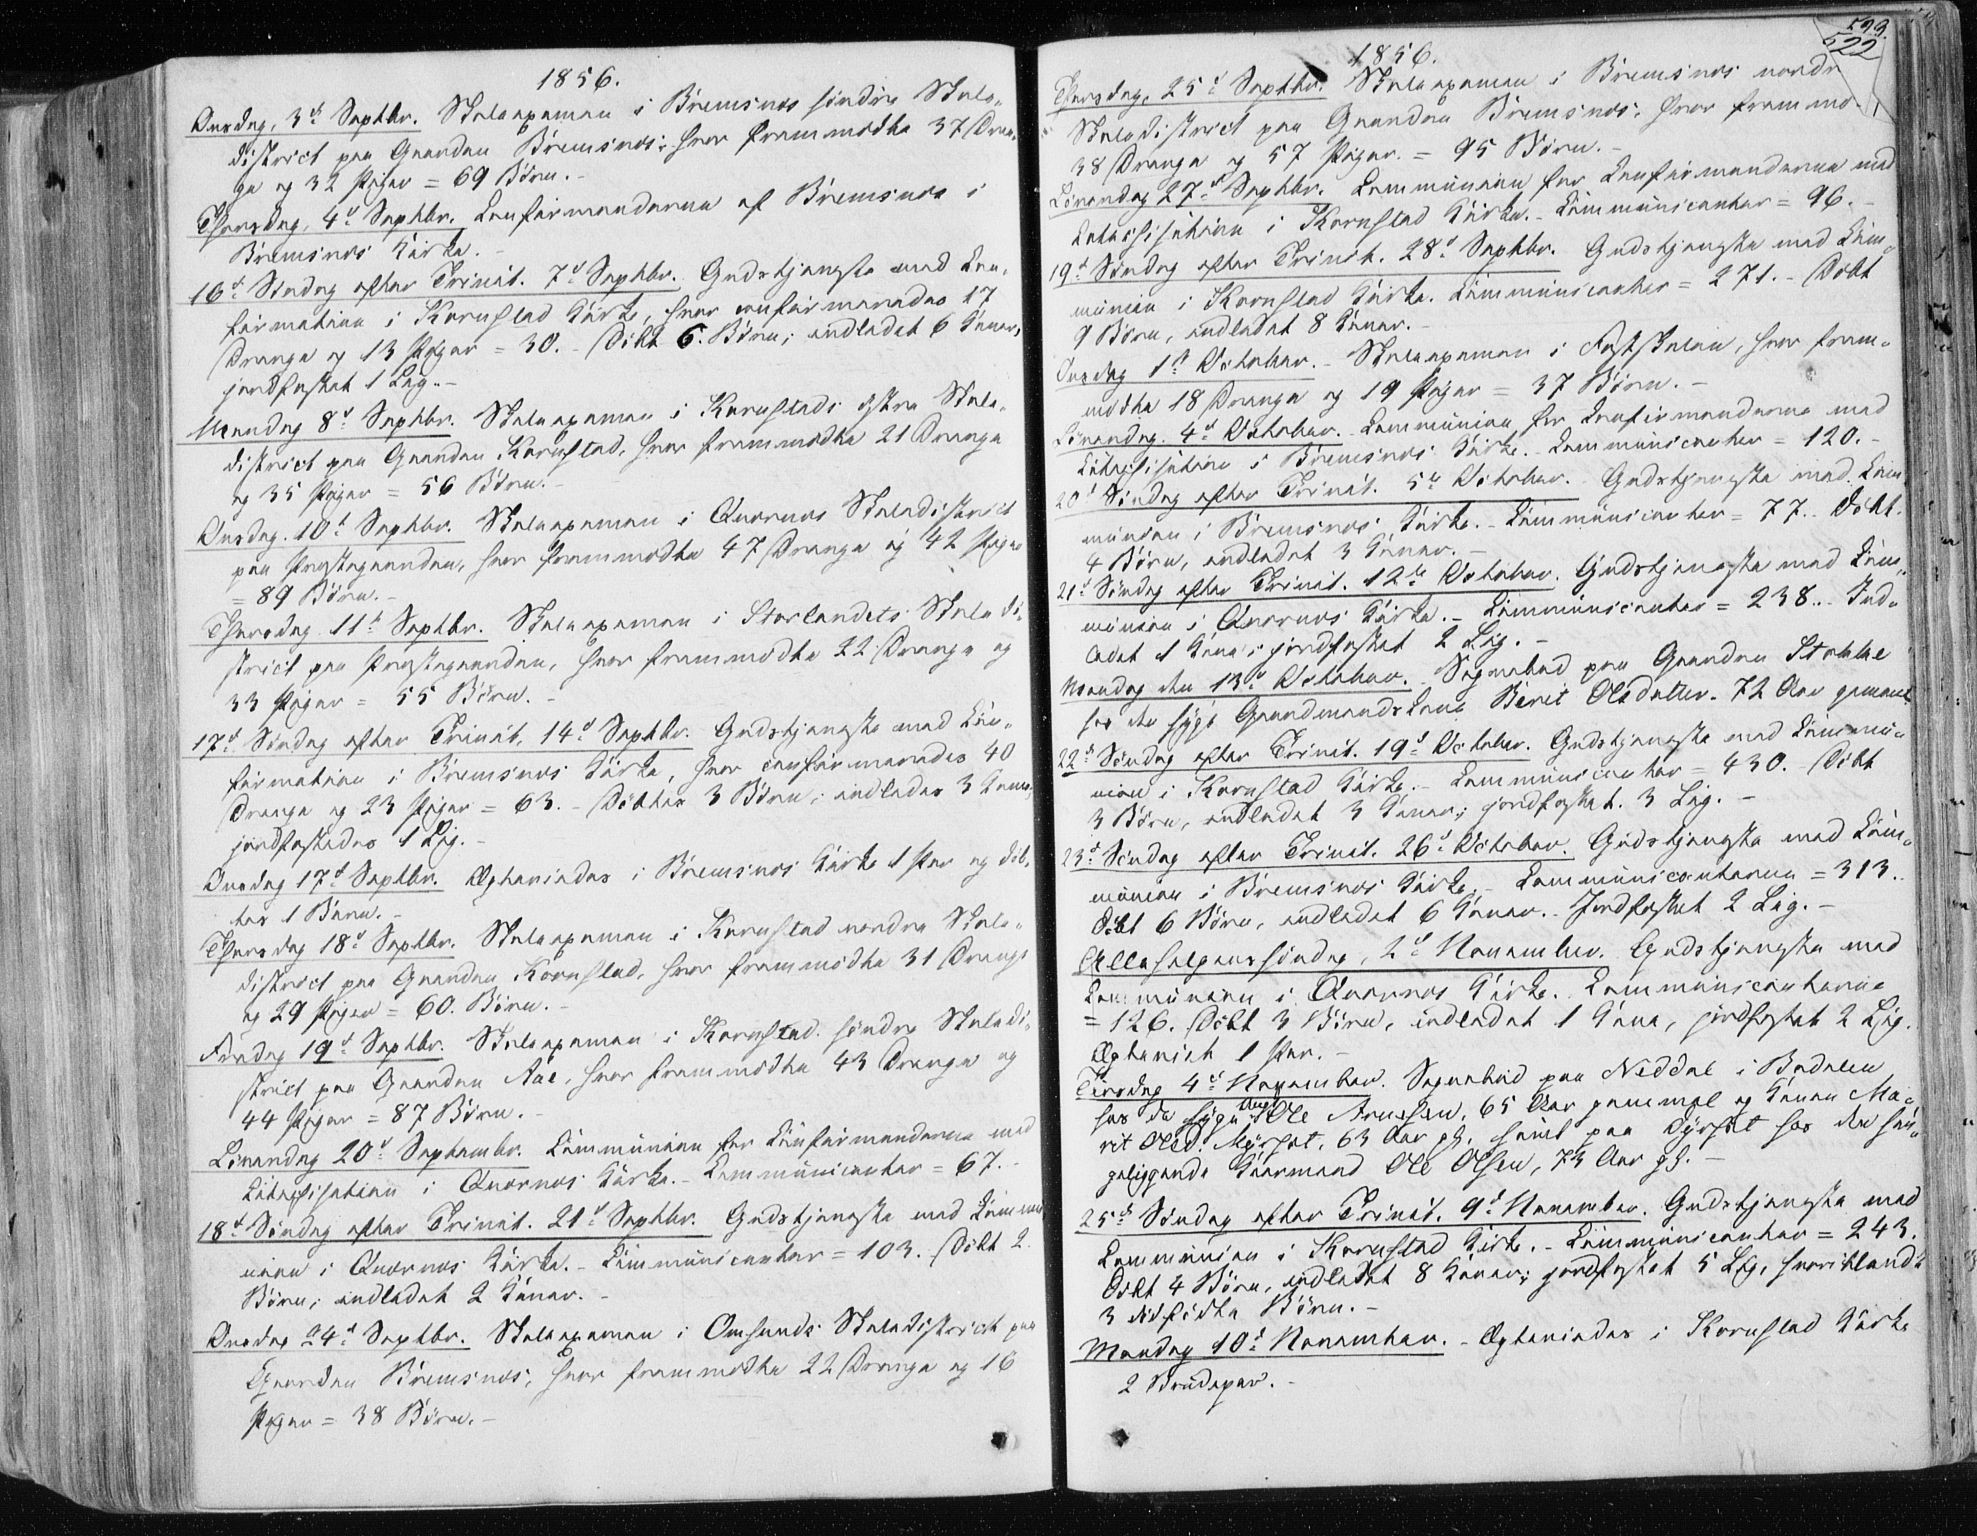 1856.
Onsdag, 3d Septbr. Skoleexamen i Bremsnæs søndre Skole-
district paa Gaarden Bremsnæs; hvor fremmødte 37 Dren-
ge og 32 Piger = 69 Børn.-
Thorsdag, 4d Septbr. Confirmanderne af Bremsnæs i
Bremsnæs Kirke.
16d Søndag efter Trinit. 7d Septbr. Gudstjeneste med Con-
firmation i Kornstad Kirke, hvor confirmeredes 17
Drenge og 13 Piger = 30. - Døbt 6. Børn; indledet 6 Koner,
jordfæstet 1 Lig.-
Mandag 8d Septbr. Skoleexamen i Kornstads østre Skole-
district paa Gaarden Kornstad, hvor fremmødte 21 Drenge
og 35 Piger = 56 Børn.-
Onsdag. 10d Septbr. Skoleexamen i Qværnæs Skoledistrict
paa Præstegaarden, hvor fremmødte 47 Drenge og 42 Piger
= 89 Børn.-
Thorsdag 11d Septbr. Skoleexamen i Storlandets Skoledi-
strict paa Præstegaarden, hvor fremmødte 22 Drenge og
33 Piger = 55 Børn.-
17d Søndag efter Trinit. 14d Septbr. Gudstjeneste med Con-
firmation i Bremsnæs Kirke, hvor confirmeredes 40
Drenge og 23 Piger = 63. - Døbtes 3 Børn; indledes 3 Koner,
jordfæstedes 1 Lig.-
Onsdag 17d Septbr. Ægteviedes i Bremsnæs Kirke 1 Par og døb-
tes 1 Barn.-
Thorsdag 18d Septbr. Skoleexamen i Kornstad nordre Skole-
district paa Gaarden Kornstad, hvor fremmødte 31 Drenge
og 29 Piger = 60. Børn.-
Fredag 19d Septbr. Skoleexamen i Kornstad søndre Skoledi-
strict paa Gaarden Aae, hvor fremmødte 43 Drenge og
44 Piger = 87 Børn.-
Løverdag 20d September. Communion for Confirmanderne med
Catechisation i Qværnæs Kirke. - Communicanter = 67.-
18d Søndag efter Trinit. 21d Septbr. Gudstjeneste med Commu-
nion i Qværnæs Kirke. - Communicanter = 103. Døbt 2
Børn; indledet 2 Koner.-
Onsdag 24d Septbr. Skoleexamen i Omsunds Skoledistrict paa
Gaarden Bremsnæs; hvor fremmødte 22 Drenge og 16
Piger = 38 Børn.-
523.
522
1856.
Thorsdag, 25d Septbr. Skoleexamen i Bremsnæs nordr
Skoledistrict paa Gaarden Bremsnæs; hvor fremmø-
38 Drenge og 57 Piger. = 95 Børn.-
Løverdag 27d Septbr. Communion for Confirmanderne med
Catechisation i Kornstad Kirke. - Communicanter = 96.-
19d Søndag efter Trinit. 28d Septbr. Gudstjeneste med Com-
munion i Kornstad Kirke. Communicanter = 271. - Døbt
9 Børn, indledet 8 Koner.-
Onsdag 1st October. - Skoleexamen i Fastskolen, hvor frem-
mødte 18 Drenge og 19 Piger = 37 Børn.-
Løverdag. 4d October. Communion for Confirmanderne med
Catechisation i Bremsnæs Kirke. - Communicanter = 120.-
20d Søndag efter Trinit. 5te October. - Gudstjeneste med Com-
munion i Bremsnæs Kirke. - Communicanter = 77. - Døbt
4 Børn, indledet 3 Koner.-
21d Søndag efter Trinit. 12te October. Gudstjeneste med Com-
munion i Qværnæs Kirke. - Communicanter = 238. - Ind-
ledet 1 Kone; jordfæstet 2 Lig.-
Mandag den 13d October. - Sognebud paa Gaarden
hos den syge Gaardmandskone Berit Olsdatter. 72 Aar gammel
22d Søndag efter Trinit. 19d October. Gudstjeneste med Commu-
nion i Kornstad Kirke. - Communicanter = 430. - Døbt
3 Børn, indledet 3 Koner; jordfæstet. 3 Lig. -
23d Søndag efter Trinit. 26d October. Gudstjeneste med Com-
munion i Bremsnæs Kirke. - Communicanterne = 313.
Døbt 6 Børn, indledet 6 Koner. - Jordfæstet 2 Lig.-
Allehelgenssøndag, 2d November. Gudstjeneste med
Communion i Qværnæs Kirke. Communicanterne
= 126. Døbt 3 Børn, indledet 1 Kone, jordfæstet 2 Lig.
Ægteviet 1 Par.-
Tirsdag 4d November. Sognebud paa Neddal i Badalen
hos de syge Ole Arnesen, 65 Aar gammel og Konen Ma-
rit Olsd. 63 Aar gl., samt paa hos den sen-
geliggende Kaarmand Ole Olsen, 73 Aar gl.-
25d Søndag efter Trinit. 9d November. Gudstjeneste med
Communion i Kornstad Kirke. - Communicanter = 243.
Døbt 4 Børn, indledet 8 Koner; jordfæstet 5 Lig, hvoriblandt
3 dødfødte Børn.-
Mandag 10d November. - Ægteviedes i Kornstad Kirke
2 Brudepar.-